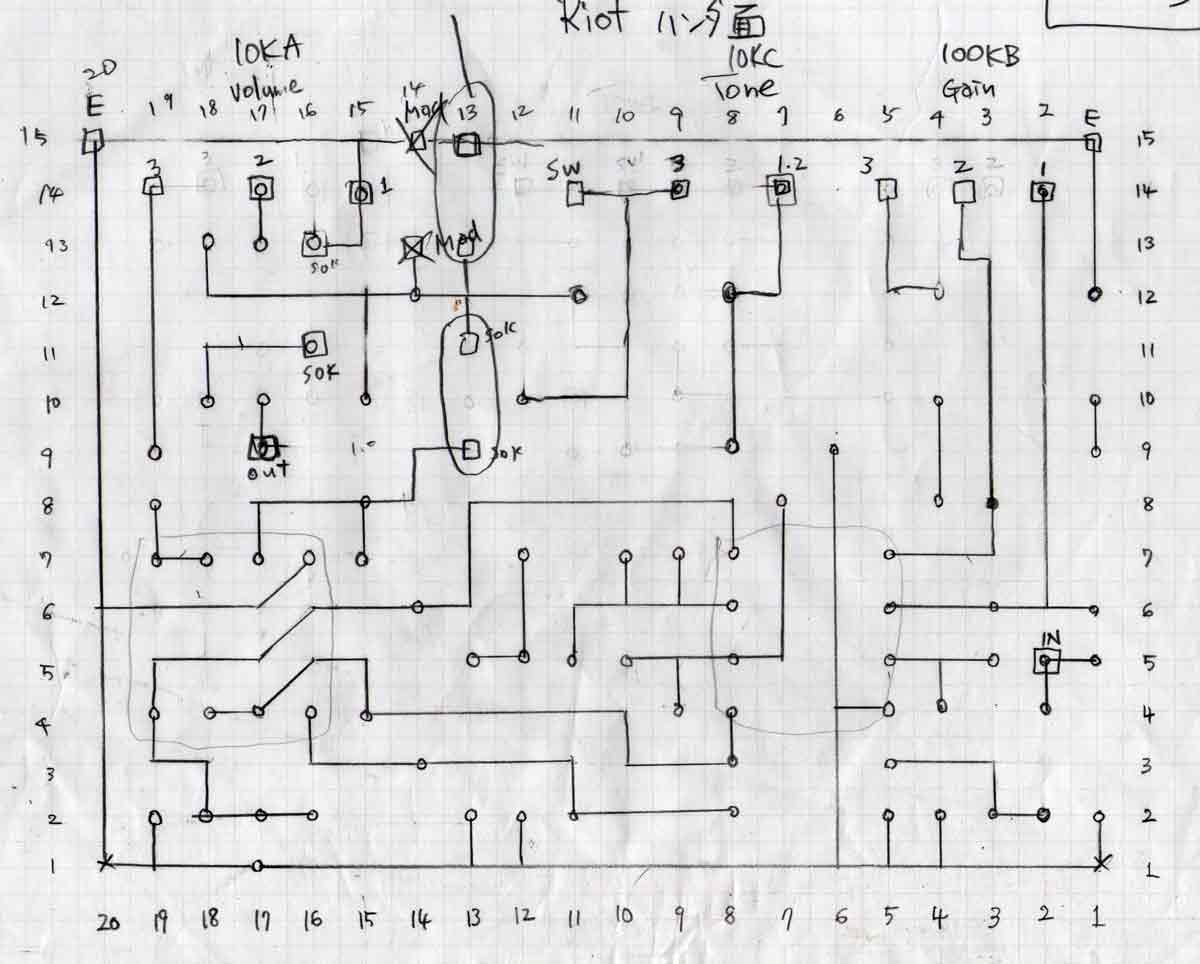 Riot ハンダ面
10KA
Volume
10KC
Tone
100KB
Gain
20 19 18 17 16 15 14 13 12 11 10 9 8 7 6 5 4 3 2 E
E Mod
15 15
3 2 1 SW 3 1.2 3 2 1
14 14
13 Mod 13
SOK
12 12
11 SOK 11
SOK
10 10
9 SOK 9
out
8 8
7 7
6 6
IN
5 5
4 4
3 3
2 2
1 1
20 19 18 17 16 15 14 13 12 11 10 9 8 7 6 5 4 3 2 1